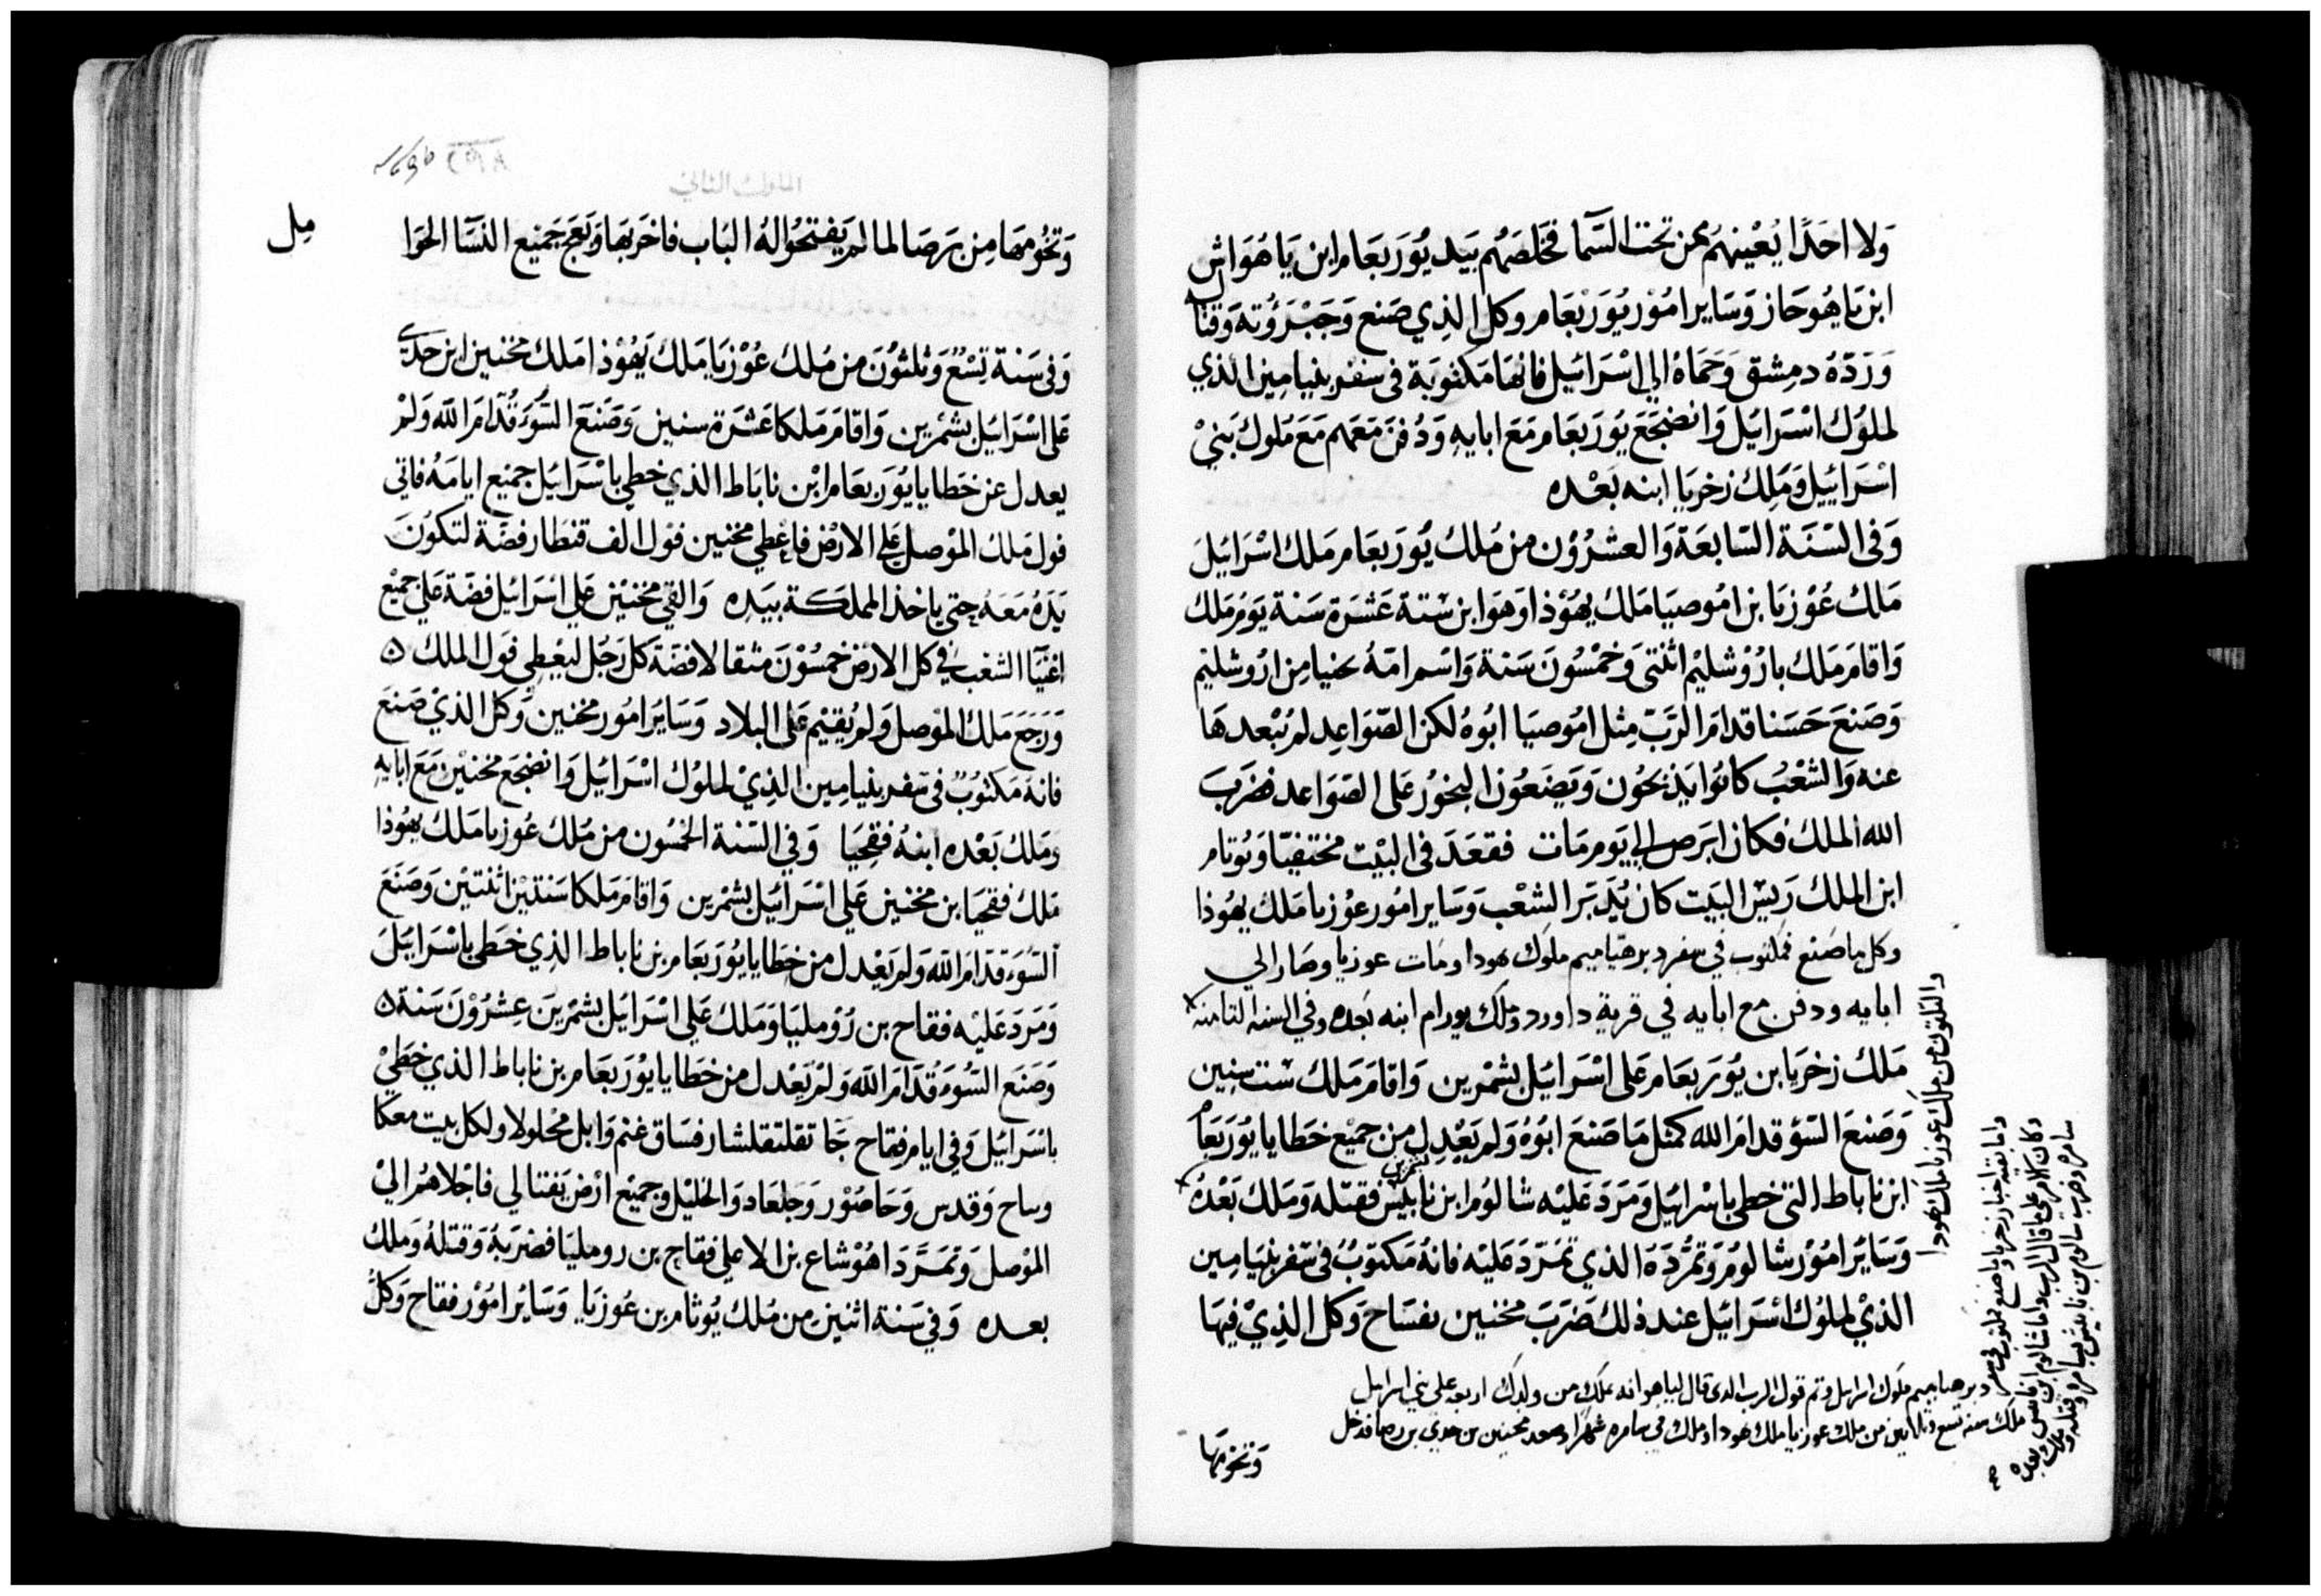 ولا احدًا يُعْينهُم من تحت السّما فخلصهُم بيد يُوربعام ابن ياهُواش
ابن ياهُوحاز وسَاير امُوْر يُوَربْعام وكل الذي صَنع وَجَبْرَؤُته وَقتاله
وَرَدّهُ دمِشق وَحَمَاهُ الي اسْرَائيل فانهَا مَكتوبَة في سفر بنيامين الذي
لملُوْك اسْرَائيل وَانضجَعَ يُوَربعَام مَعَ ابايهِ وَدُفنَ مَعَهم مَعَ مَلوك بَنيْ
اسْرَائيل وَمَلِكَ زخريَا ابنه بَعْده
وَفى السّنَة السّابعَة وَالعشرُوْن من مُلك يُوَربعَام مَلك اسْرَائيلَ
مَلك عُوْزيَا بن امُوصيَا مَلكَ يهُوْذا وَهوَ ابن سْتة عَشَرَة سَنة يَومُ مَلك
وَاقامَ مَلك بارُوْشليْم اثنتى وَخمْسُونَ سَنة وَاسْم امّهُ يخنيا مِن ارُوشليْم
وَصَنعَ حَسَنا قدام الرَبّ مِثل امُوصيَا ابُوهُ لكن الصّوَاعِد لمْ يُبْعدهَا
عنه وَالشعْبُ كانُوا يَذبحُون وَيَضعُون البخوُر عَلى الصّوَاعد فضرَبَ
الله الملك فكان ابرَص الي يَوم مَات فقعَدَ فى البيْت مختفيًا وَيُوتام
ابن الملك رَييس البَيت كان يُدَبّر الشعْب وَسَاير امُور عوُزيا مَلك يهُوذا
وكل ما صنع فمكتوب في سفر دبرهياميم ملوك هودا ومات عوزيا وصار الي
ابايه ودفن مع ابايه في قرية داوود وملك يورام ابنه بعده وفي السنه الثامنه
ملكَ زخرَيا بن يُوَربعَام عَلى اسْرَائيل بشمْرين وَاقامَ مَلكَ ست سنِين
وَصَنعَ السّوْ قدام الله كمثل مَا صَنعَ ابَوُهُ وَلم يَعْدِل من جميْع خطايا يُوَربَعام
ابن ناباط التى خطي باسْرائيل وَمَرَدَ عَليْه شالوُم ابن نابيش فقتله وَمَلك بَعْدهُ
وَسَايُر امُوْر شالوُم وَتمُّردَهُ الذي تمَرّد عَليْه فانهُ مَكتوُبٌ فى سفر بنيَامين
الذيْ لملوُك اسْرَائيل عند ذلك ضَرَبَ مخنين نفسَاح وَكل الذِيْ فيهَا
والثلثون من ملك عوزيا ملك هودا
واما بقيه اخبار زخريا وما صنع مكتوب في سفر
دبرهياميم ملوك اسرايل وتم قول الرب الذي قال لياهو انه يملك من ولدك اربعه على بني اسرايل
وكان كلامه على ما قال الرب واما شالوم ابن
ملك سنه تسع وثلاثين من ملك عوزيا ملك هودا وملك في سامره شهرًا وصعد مخنين بن جدي من برصا فدخل
سامره وضرب شالوم بن نابيش بسامره وقتله وملك بعده
وَتخومَها
الملوك الثاني
مل
وَتخُومهَا مِن برَصَا لما لم يَفتحُوا لهُ البَاب فاخرَبهَا وَبَعَج جَميْع النسَّا الحوَا
وَفى سَنة تِسْعُ وَثلثوُنَ من مُلك عُوْزيَا مَلك يَهُوْذا مَلك مخنين ابن حدي
عَلى اسْرَائيل بشمْرين وَاقامَ مَلكا عَشرَة سنين وَصَنعَ السّوُء قُدّام الله وَلمْ
يعدل عن خَطايا يُوَربعَام ابْن نابَاط الذي خطي باسْرَائيل جميْع ايامَهُ فاتي
فول مَلك الموْصل على الارْض فاعْطي مخنين فول الف قنطار فضّة لتكوُنَ
يَدَهُ مَعَهُ حتي ياخذ المملكة بيَده وَالقي مخنيْن علي اسْرَائيل فضّة عَلى جميْع
اغنيَا الشعْب في كل الارْض خمسُوْنَ مثقالا فضّة كل رَجُل ليعْطي فول الملك ٥
وَرَجَعَ مَلك الموْصل وَلم يُقيْم عَلى البلاد وَسَايُر امُور مخنين وَكل الذيْ صَنعَ
فانهُ مَكتوُبٌ فى سفر بنيامين الذِيْ لملوُك اسْرَائيل وَانضجَع مخنيْن مَعَ ابايه
وَمَلك بَعْده ابنهُ فقحيَا وَفي السّنة الخمسُون من مُلك عُوزيا مَلك يهُوْذا
مَلك فقحيَا بن مخنين عَلي اسْرَائيل بشمْرين وَاقامَ مَلكا سَنتيْن اثنتيْن وَصَنعَ
السّوُءَ قدام الله وَلم يَعْدل من خطايا يُوَربَعَام بن ناباط الذِي خطى باسْرَائيلَ
وَمَرَدَ عَليْه فقاح بن رُوْمليَا وَمَلك عَلي اسْرَائيل بشمْرينَ عِشرُوْنَ سَنة ٥
وَصَنعَ السّوُءَ قُدّام الله وَلمْ يَعْدل من خطايا يُوْرَبعَام بن ناباط الذي خَطيْ
باسْرَائيل وَفي ايام فقاح جَا تقلتفلشار فسَاق غنم وَابل محْلولا ولكل بيت معكا
وساح وَقدس وَحَاصُوْر وَجلعاد وَالخليْل وجميْع ارْض نفتالي فاجْلاهُم اليْ
الموْصل وَتمَرَّدَ اهُوْشاع بن الا علي فقاح بن رومليَا فضرَبهُ وَقتلهُ وَمَلك
بعده وَفي سَنة اثنين من مُلك يُوثام بن عُوزيَا وَسَايُر امُوْر فقاح وَكلُ